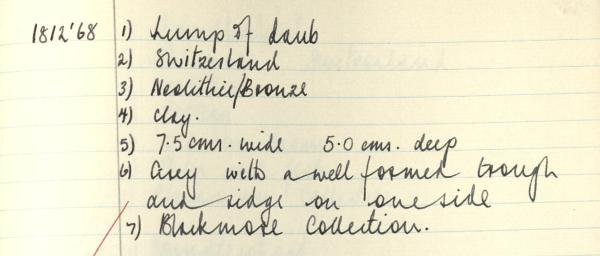 1812'68 1) Lump of daub
2) Switzerland
3) Neolithic/Bronze
4) Clay.
5) 7.5 cms. wide 5.0 cms. deep
6) Grey with a well formed trough
and ridge on one side
7) Blackmore Collection.